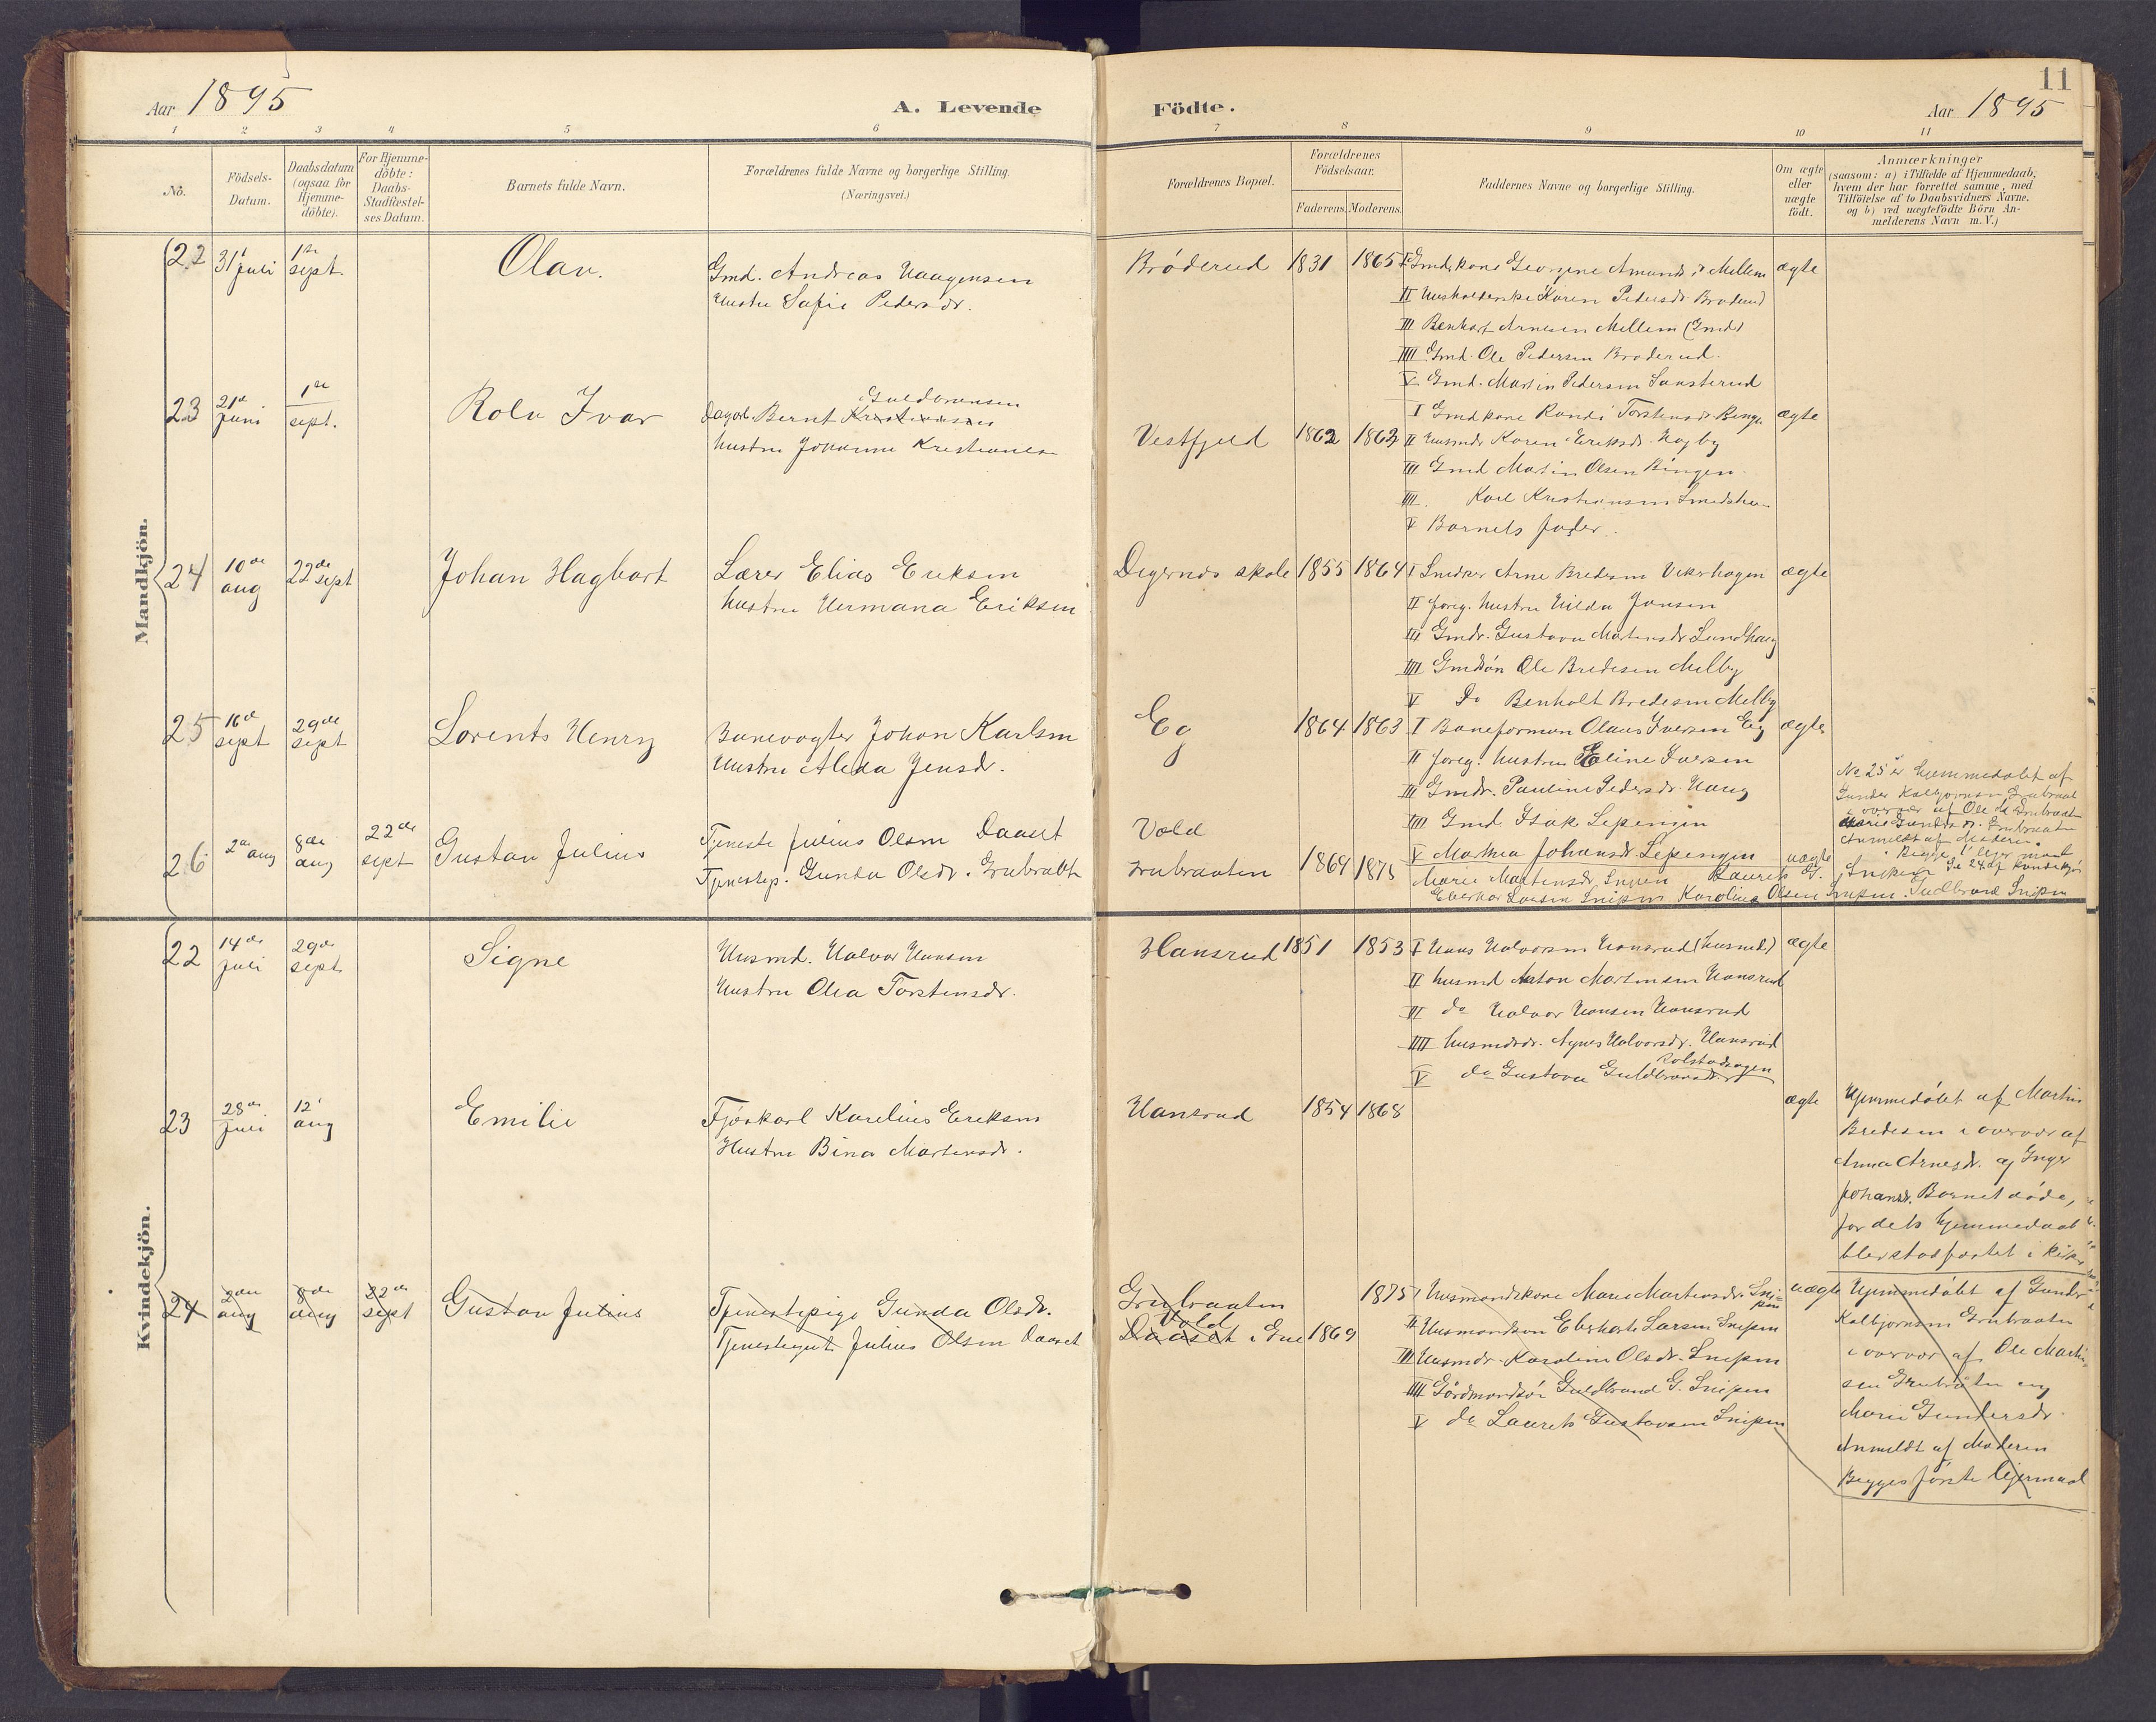 Aar 1895
A. Levende
Födte.
Aar 1895
11
1 2 3 4 5 6 7 8 9 10 11
No.
Födsels-
Datum.
Daabsdatum
(ogsaa for
Hjemme-
döbte).
For Hjemme-
döbte:
Daabs-
Stadfæstel-
ses Datum.
Barnets fulde Navn.
Forældrenes fulde Navne og borgerlige Stilling.
(Næringsvei.)
Forældrenes Bopæl.
Forældrenes
Födselsaar.
Faderens. Moderens.
Faddernes Navne og borgerlige Stilling.
Om ægte
eller
uægte
födt.
Anmærkninger
(saasom: a) i Tilfælde af Hjemmedaab,
hvem der har forrettet samme, med
Tilföielse af to Daabsvidners Navne.
og b) ved uægtefödte Börn An-
melderens Navn m. V.)
Mandkjön.
22
31 juli
1ste sept.
Olav.
Gmd. Andreas Haagensen
Hustru Sofie Pedersdr.
Bröderud
1831
1865
I Gmdkone Georgine Amundsdr Mellem
II Husholderske Karen Pedersdr Broderud
III Benhart Arnesen Mellem (Gmd)
IIII Gmd. Ole Pedersen Broderud.
V Gmd. Martin Pedersen
ægte
23
21de juni
1ste sept.
Rolv Ivar
Guldbransen
Dagarb. Bernt Kristiansen
hustru Johanne
Vestfjeld
1862
1862
I Gmdkone Randi Torstensdr
II Karen Eriksdr. Hagby
III Gmd Martin Olsen Bingen
IIII. Karl Kristiansen
V Barnets fader.
ægte
24
10de aug
22de sept
Johan Hagbart
Lærer Elias Eriksen
hustru Hermana Eriksen
Digernes skole
1855
1864
I Snedker Arne Bredesen
II foreg. hustru Hilda Jansen
III Gmdr. Gustava Martinsdr Lundhaug
IIII Gmdsön Ole Bredesen Melby
V Do Benholt Bredesen Melby
ægte
25
16de sept
29de sept
Lorents Henry
Banevogter Johan Karlsen
Hustru Aleda Jensdr.
Eg
1864
1863
I Baneformen Olaus Iversen Eg
II foreg. hustru Eline Iversen
III Gmdr. Pauline Pedersdr. Haug
IIII Gmd. Isak Lepengen
V Marthea Johansdr. Lepengen
ægte
26
2de aug
8de aug
22de sept
Gustav Julius
Tjeneste Julius Olsen Daaset
Tjenestep. Gunda Olsdr. Grubraatt
Vold
Grubraaten
1869
1875
Marie Martinsdr. Snipen Laurits G. Snipen
Eberhar Larsen Snipen Karoline Olsen Snipen. Gudbrand Snipen
uægte
No 25 er hjemmedøbt af
Gunder Kolbjornsen Grubraat
i overvær af Ole M. Grubraaten
Marie Gundersdr. Grubraaten
Anmeldt af Moderen.
Kvindekjön.
22
14de juli
29de sept.
Signe
Husmd. Halvor Hansen
Hustru Olea Torstensdr.
Hansrud
1851
1853
I Hans Halvorsen Hansrud (husmd.)
II husmd Anton Martinsen Hansrud
III do Halvor Hansen Hansrud
IIII husmdsdr. Agnes Halvorsdr. Hansrud
V do Gustava Guldbrandsdr. Rolstadhagen
ægte
23
28de juli
12' aug
Emilie
Fjöskarl Karelius Eriksen
Hustru Bina Martinsdr.
Hansrud
1854
1868
ægte
Hjemmedöbt af Martin
Bredesen i overvær af
Anna Arnesdr. og Inger
Johansdr. Barnet döde,
för dets hjemmedaab
blev stadfæstet i kirken
24
2den aug
8de aug
22de sept
Gustav Julius
Tjenestepige Gunda Olsdr.
Tjenestegut Julius Olsen Daaset
Grubraaten
Vold
Daaset i Grue
1869
1875
I Husmandskone Marie Martinsdr. Snipen
II Husmandsøn Eberhart Larsen Snipen
III Husmdr. Karoline Olsdr. Snipen
IIII Gårdmandsön Guldbrand G. Snipen
V do Laurits Gustavsen Snipen
uægte
Hjemmedöbt af Gunder
Kolbjornsen Grubraaten
i overvær af Ole Martin-
sen Grubråten og
Marie Gundersdr.
Anmeldt af Moderen
Begges förste lejermaal